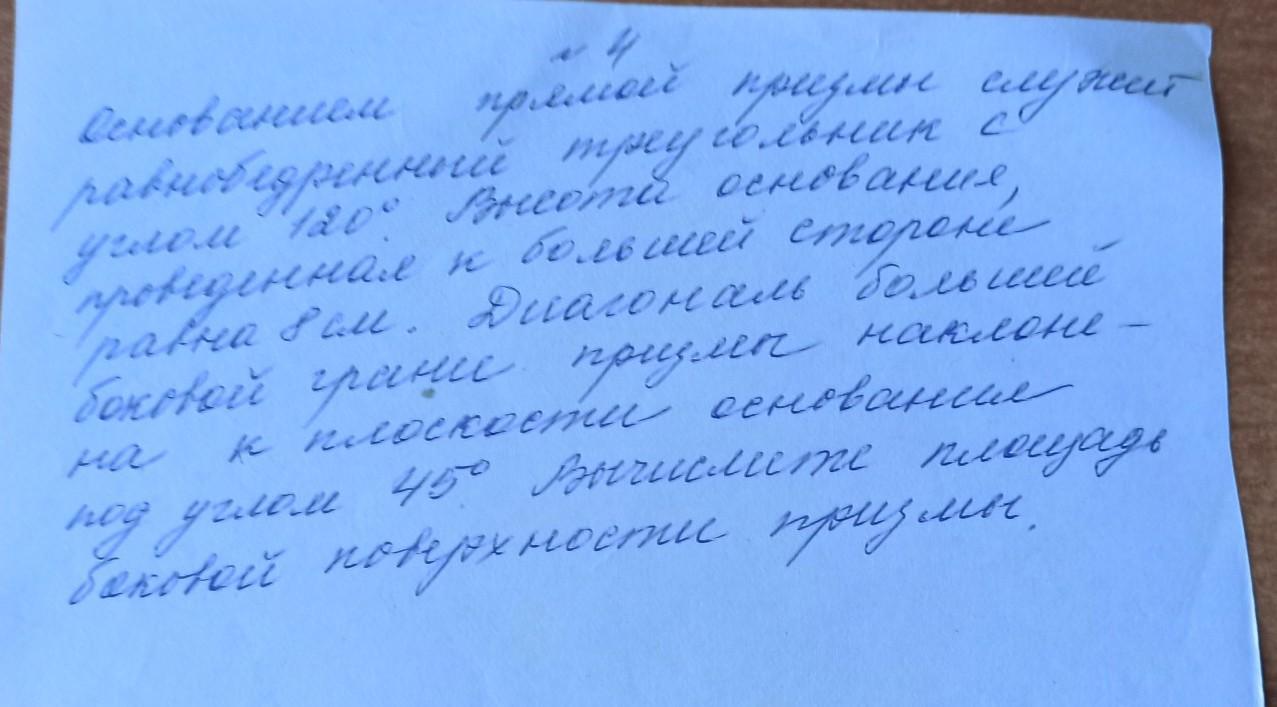 № 4
Основанием прямой призмы служит
равнобедренный треугольник с
углом 120°. Высота основания,
проведенная к большей стороне
равна 8 см. Диагональ большей
боковой грани призмы наклоне-
на к плоскости основания
под углом 45° Вычислите площадь
боковой поверхности призмы.